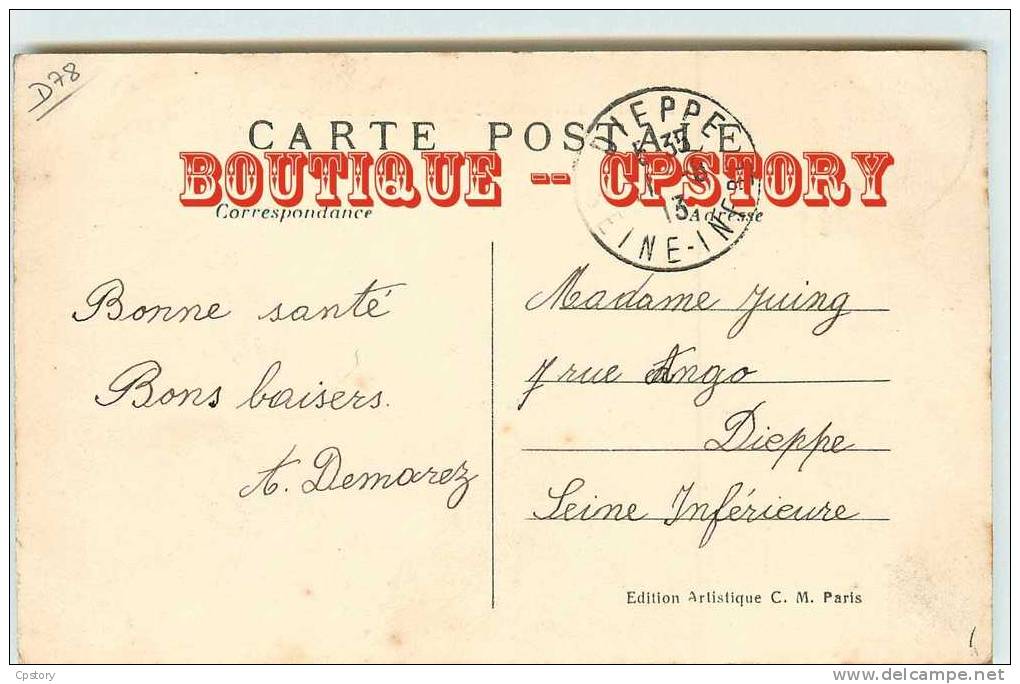 D78
CARTE POSTALE
BOUTIQUE -- CPSTORY
DIEPPE
13
SEINE-INFRE
Correspondance
Adresse
Bonne santé
Bons baisers.
A. Demarez
Madame Juing
7 rue Ango
Dieppe
Seine Inférieure
Edition Artistique C. M. Paris
Cpstory
www.delcampe.net